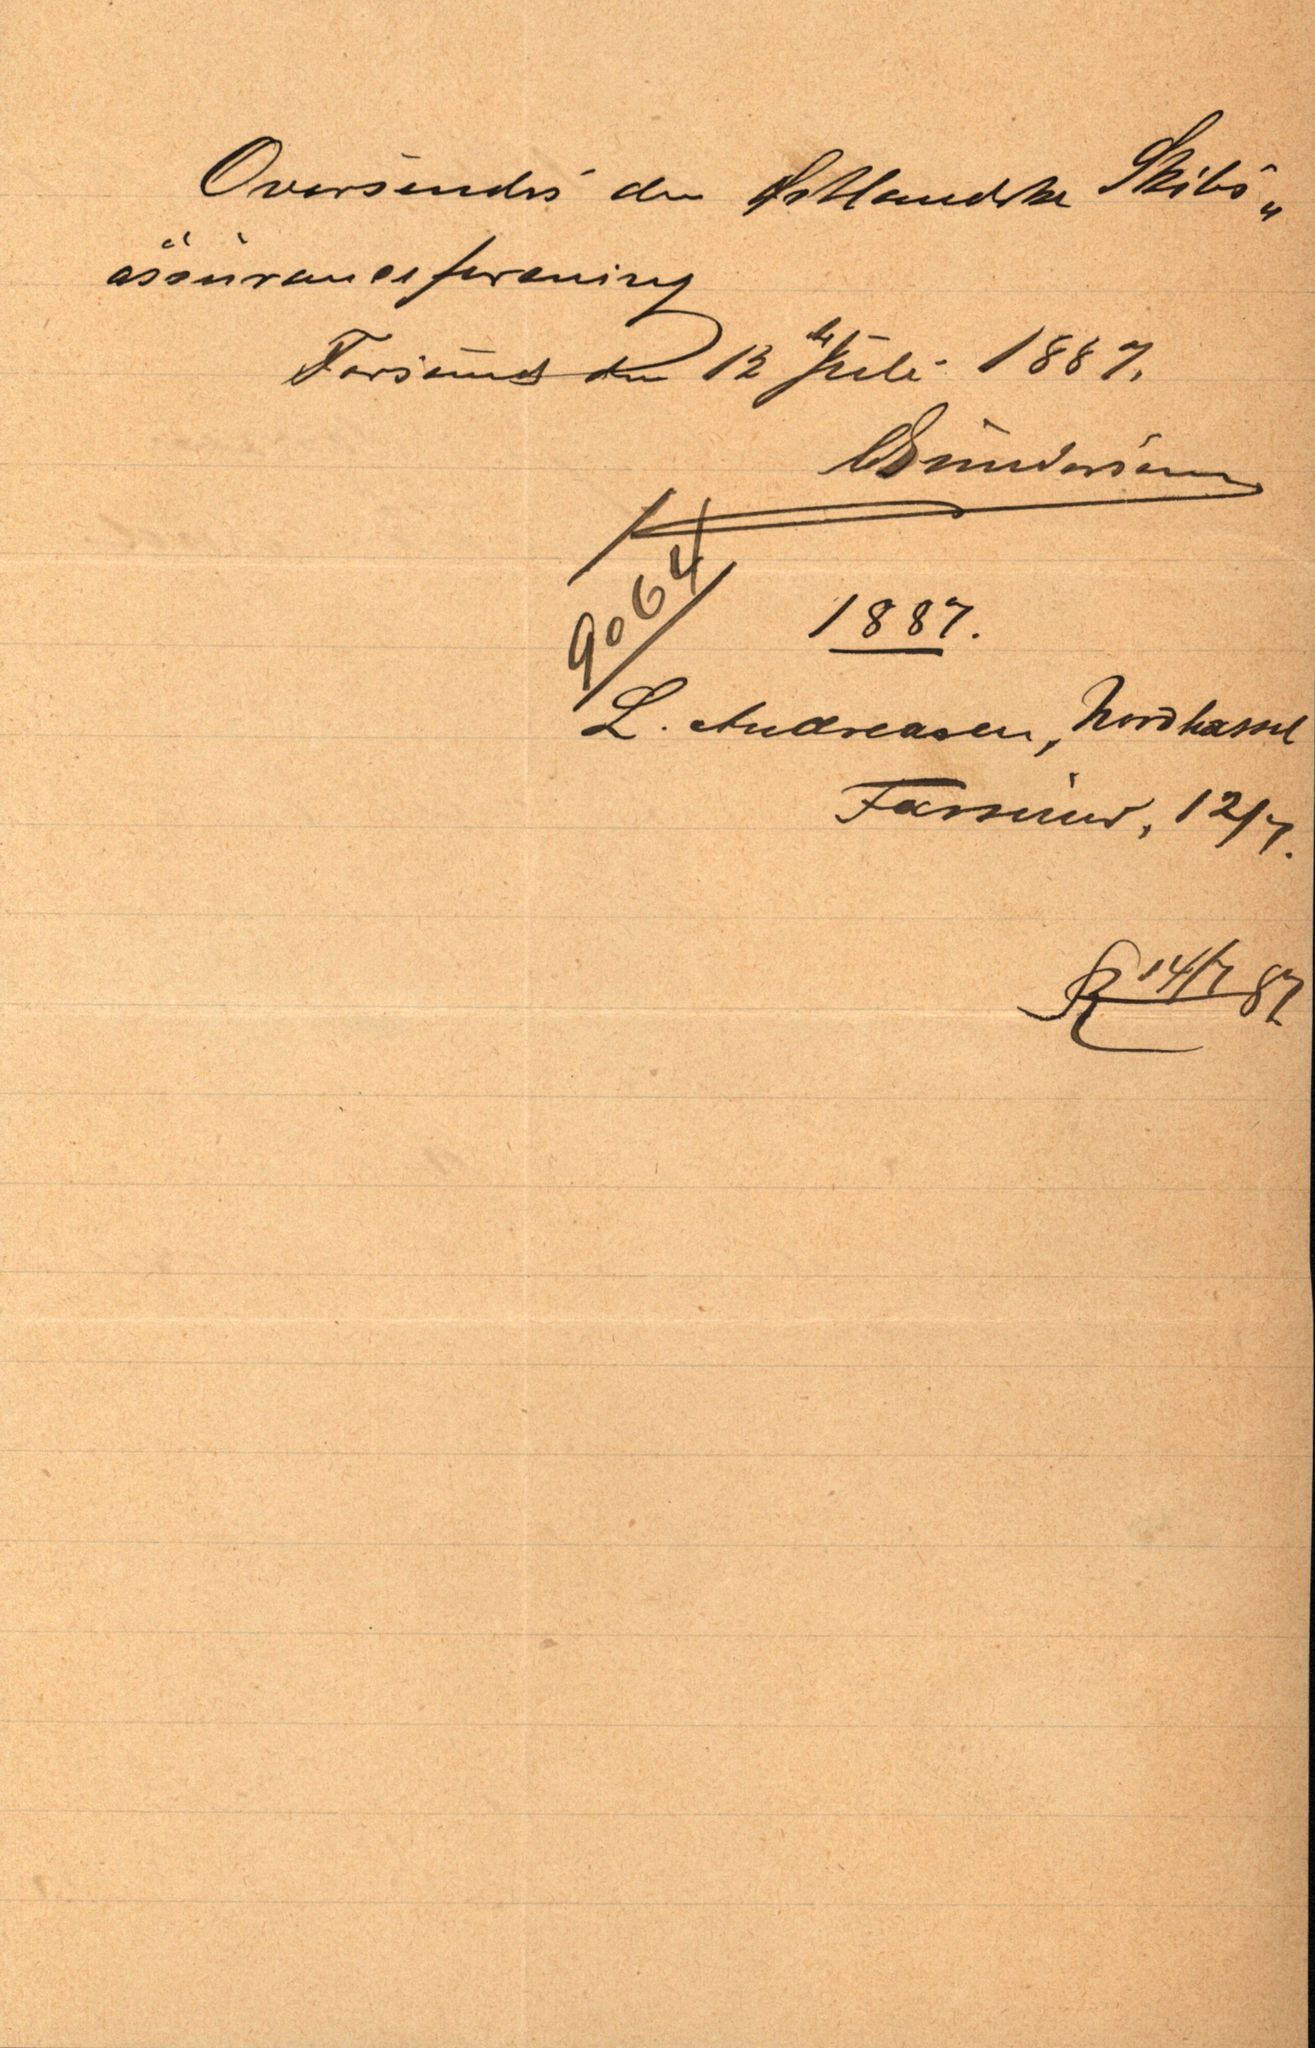 Oversendes den Østlandske Skibs„
assuranceforening
Farsund den 12te Juli 1887.
Gundersen
9064
1887.
L. Andreasen, Nordhassel
Farsund, 12/7.
14/7 87